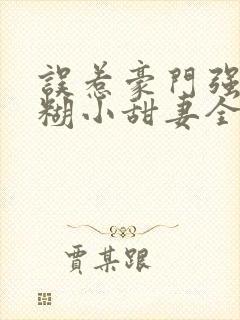 誤惹豪門强
糊小甜妻全
賈某跟